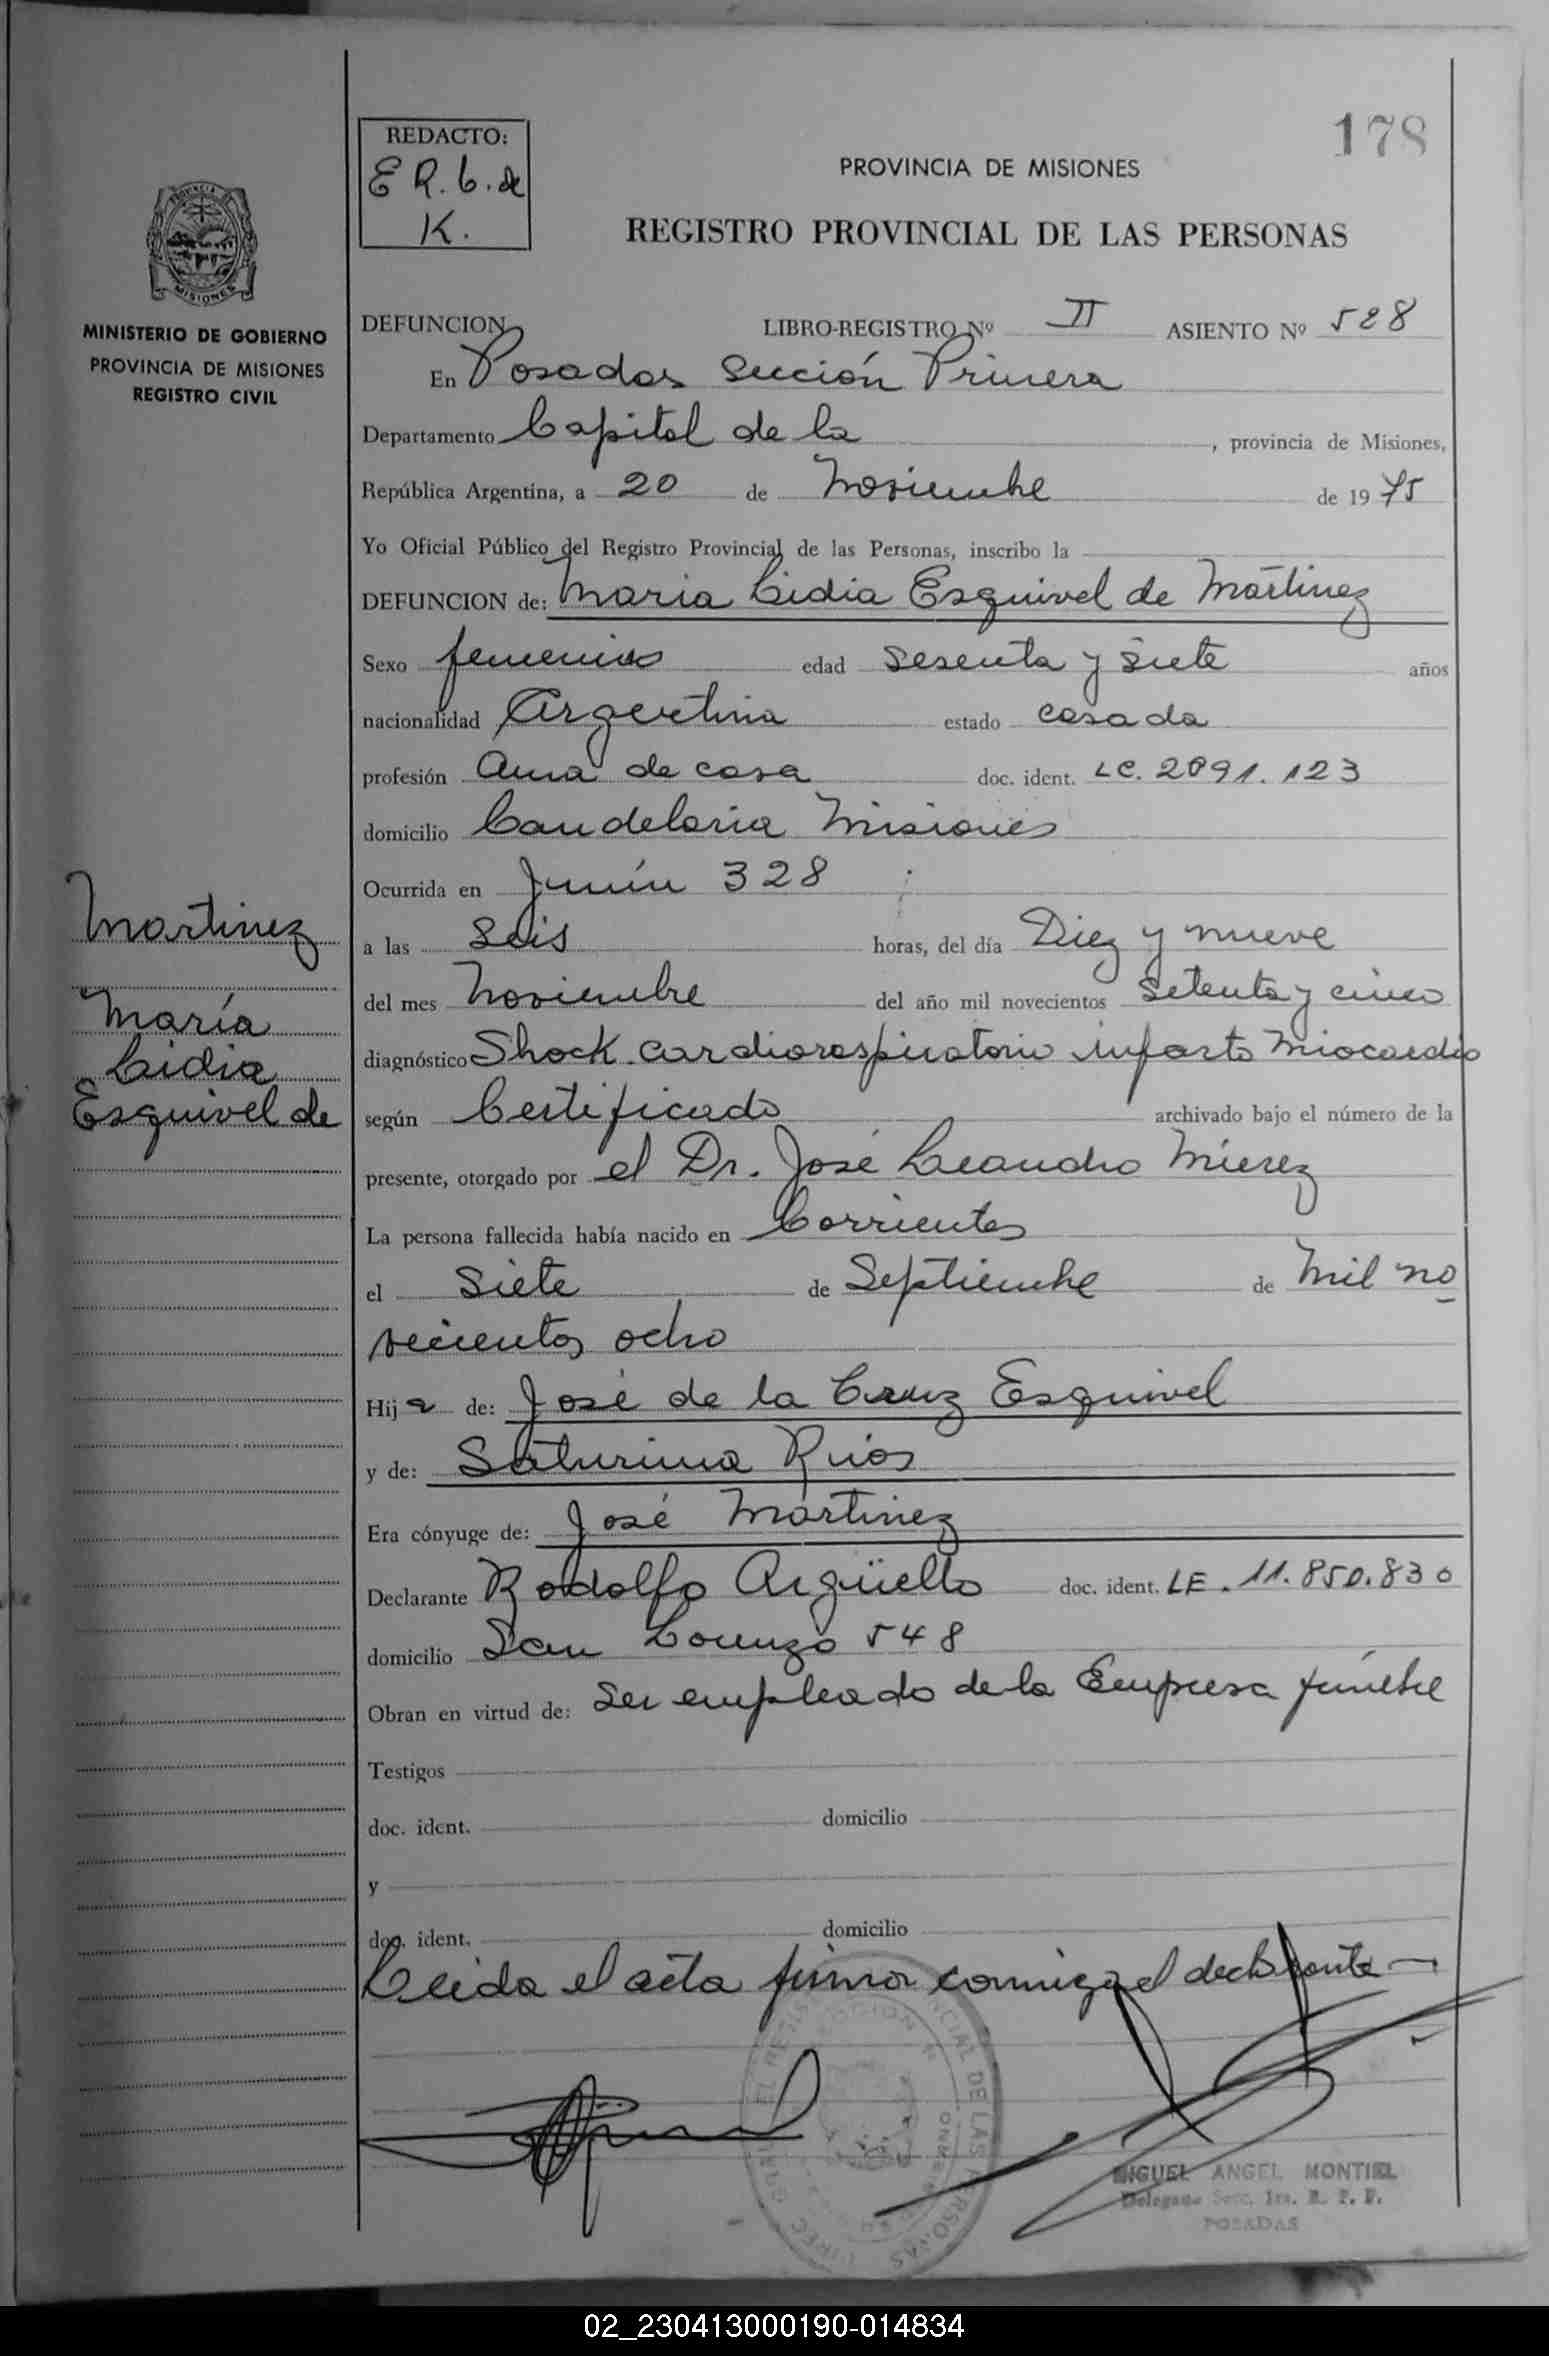 178
REDACTO:
E R. G. de
K.
PROVINCIA DE MISIONES
REGISTRO PROVINCIAL DE LAS PERSONAS
MISIONES
MINISTERIO DE GOBIERNO
PROVINCIA DE MISIONES
REGISTRO CIVIL
DEFUNCION LIBRO-REGISTRO Nº II ASIENTO Nº 528
En Posadas Sección Primera
Departamento Capital de la , provincia de Misiones,
República Argentina, a 20 de Noviembre de 1975
Yo Oficial Público del Registro Provincial de las Personas, inscribo la
DEFUNCION de: Maria Lidia Esquivel de Martinez
Sexo femenino edad Sesenta y Siete años
nacionalidad Argentina estado casada
profesión Ama de casa doc. ident. LC. 2091.123
domicilio Candelaria Misiones
Ocurrida en Junín 328
a las Seis horas, del día Diez y nueve
del mes Noviembre del año mil novecientos Setenta y cinco
diagnóstico Shock cardiorespiratorio infarto Miocardio
según Certificado archivado bajo el número de la
presente, otorgado por el Dr. José Leandro Mierez
La persona fallecida había nacido en Corrientes
el Siete de Septiembre de Mil no
vecientos ocho
Hija de: José de la Cruz Esquivel
y de: Saturnina Rios
Era cónyuge de: José Martinez
Declarante Rodolfo Argüello doc. ident. LE. 11.850.830
domicilio San Lorenzo 548
Obran en virtud de: Ser empleado de la Empresa fúnebre
Testigos
doc. ident. domicilio
y
doc. ident. domicilio
Leida el acta firma conmigo el declarante
Martinez
María
Lidia
Esquivel de
MIGUEL ANGEL MONTIEL
Delegado Secc. 1ra. R. P. P.
POSADAS
02_230413000190-014834